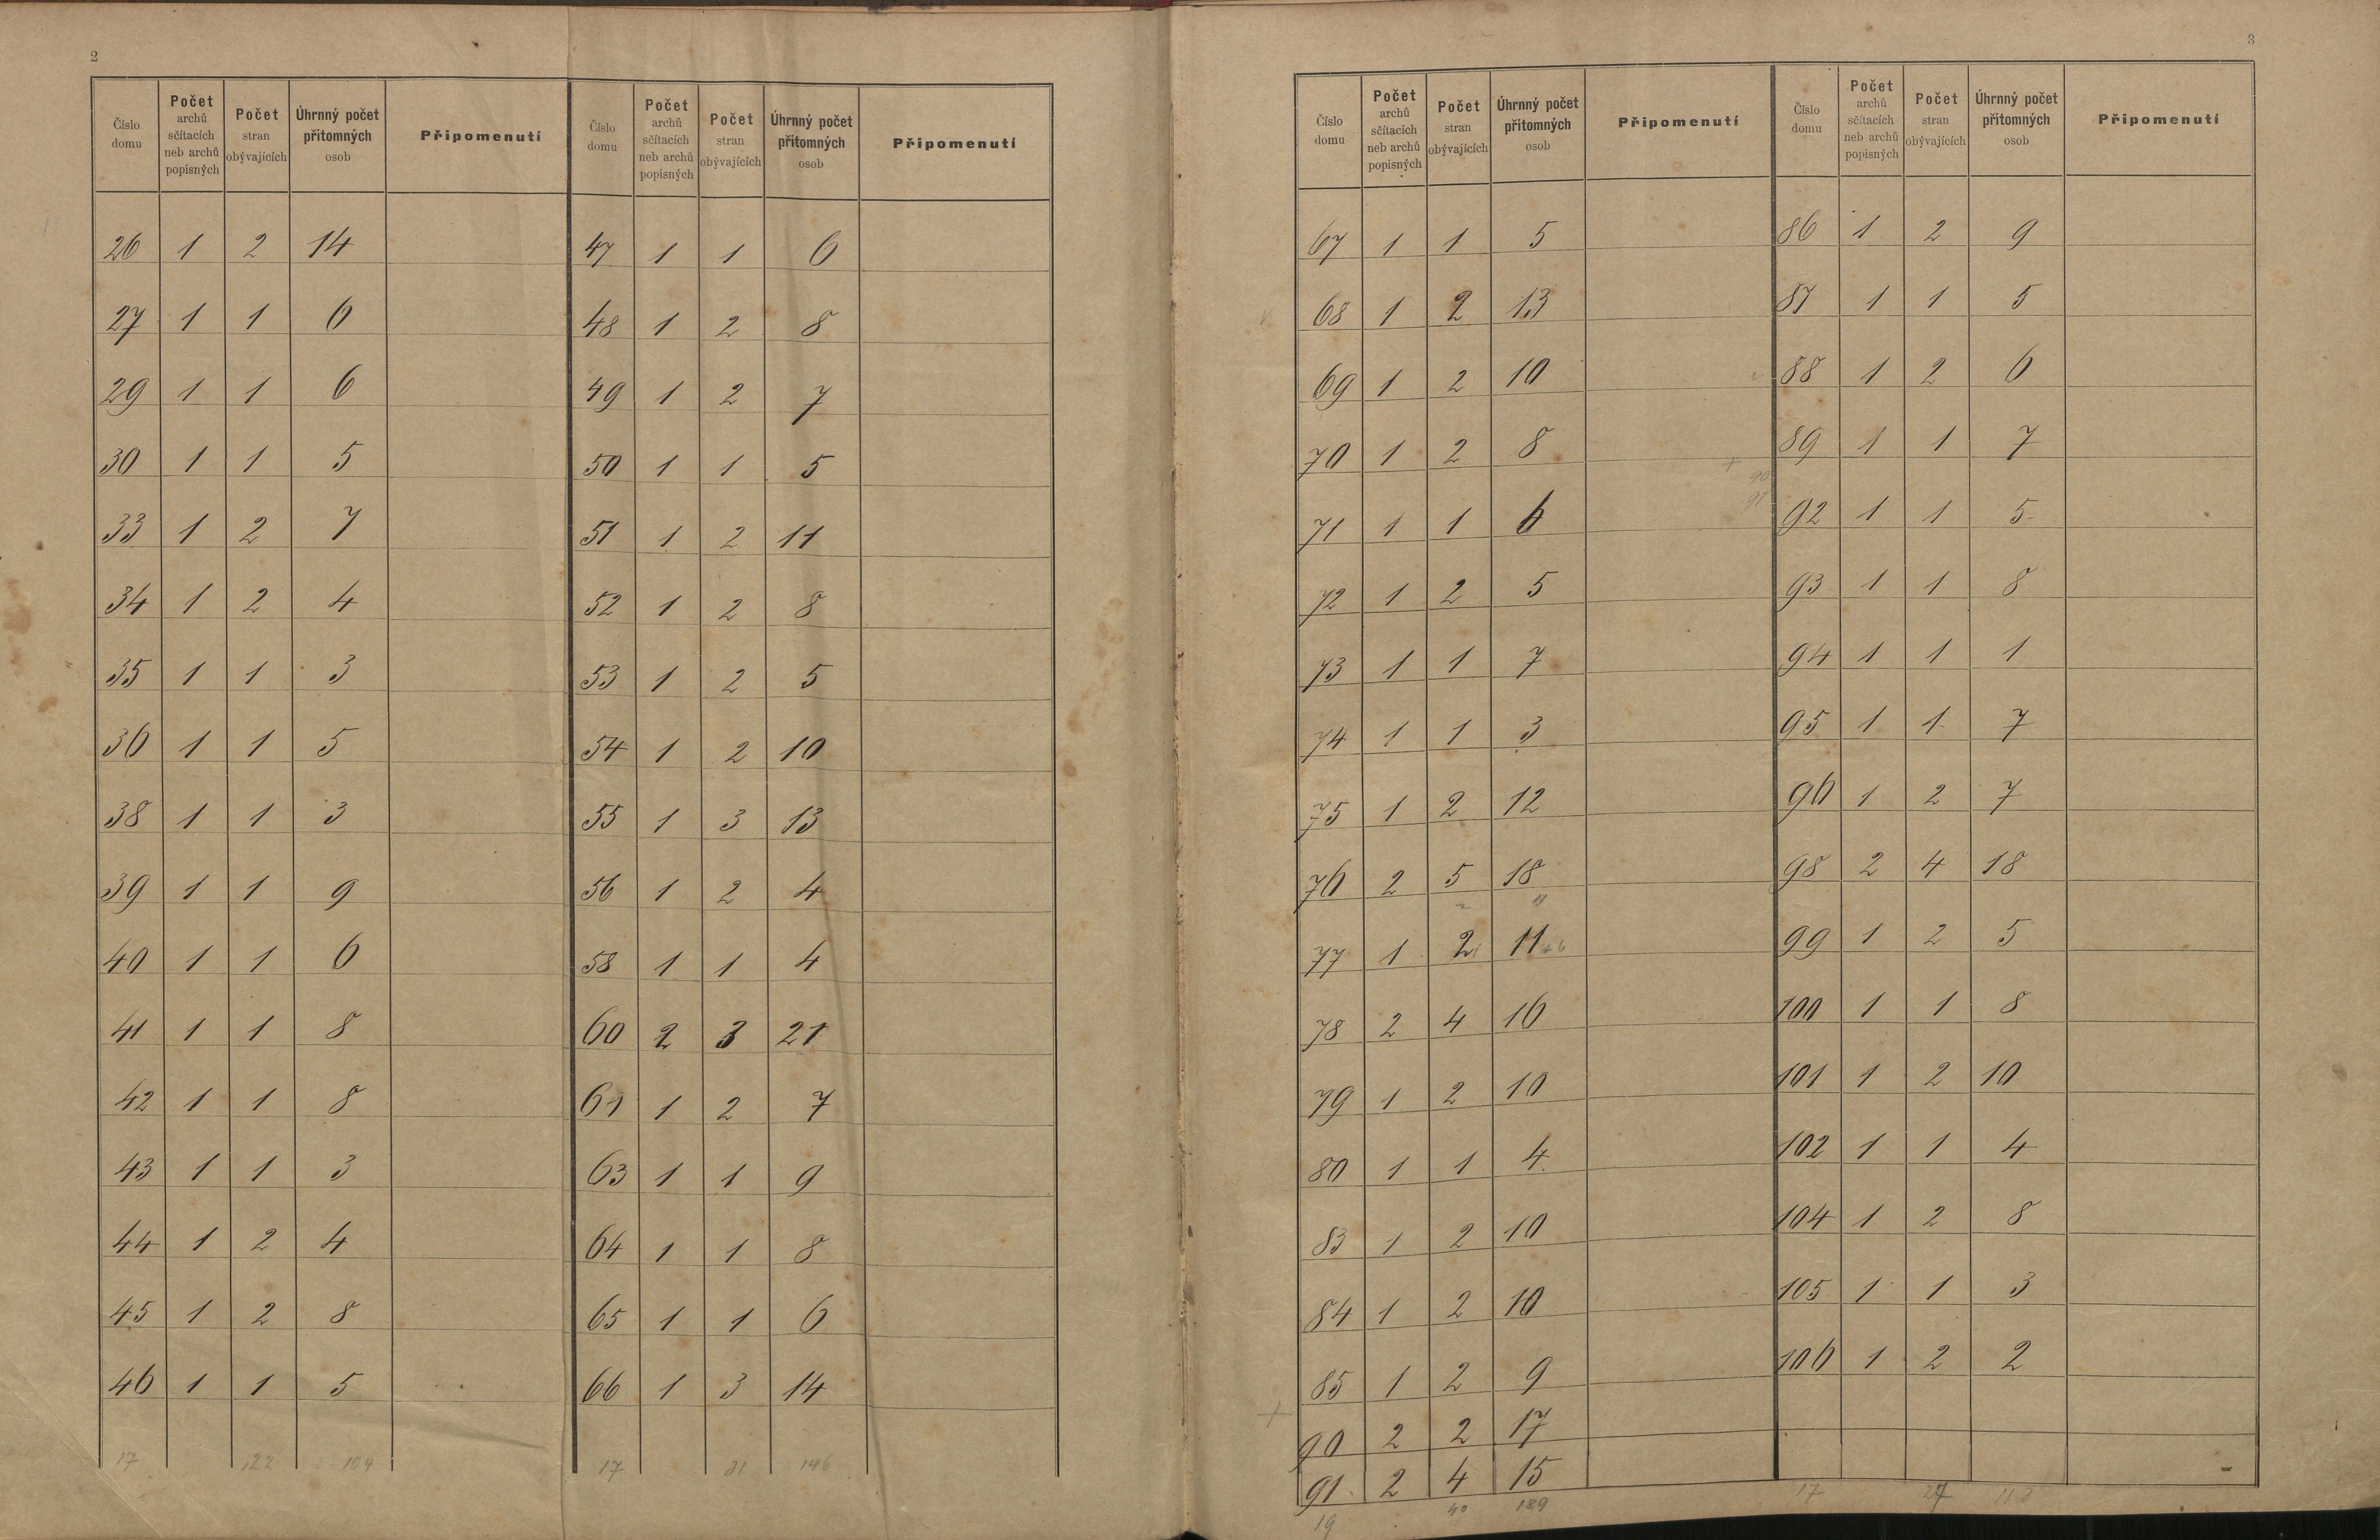 2
Číslo domu | Počet archů sčítacích neb archů popisných | Počet stran obývajících | Úhrnný počet přítomných osob | Připomenutí
26 1 2 14
27 1 1 6
29 1 1 6
30 1 1 5
33 1 2 7
34 1 2 4
35 1 1 3
36 1 1 5
38 1 1 3
39 1 1 9
40 1 1 6
41 1 1 8
42 1 1 8
43 1 1 3
44 1 2 4
45 1 2 8
46 1 1 5
17 22 104
Číslo domu | Počet archů sčítacích neb archů popisných | Počet stran obývajících | Úhrnný počet přítomných osob | Připomenutí
47 1 1 6
48 1 2 8
49 1 2 7
50 1 1 5
51 1 2 11
52 1 2 8
53 1 2 5
54 1 2 10
55 1 3 13
56 1 2 4
58 1 1 4
60 2 3 21
61 1 2 7
63 1 1 9
64 1 1 8
65 1 1 6
66 1 3 14
17 31 146
3
Číslo domu | Počet archů sčítacích neb archů popisných | Počet stran obývajících | Úhrnný počet přítomných osob | Připomenutí
67 1 1 5
68 1 2 13
69 1 2 10
70 1 2 8
71 1 1 6
72 1 2 5
73 1 1 7
74 1 1 3
75 1 2 12
76 2 5 18
77 1 2 11 +6
78 2 4 16
79 1 2 10
80 1 1 4
83 1 2 10
84 1 2 10
85 1 2 9
90 2 2 17
91 2 4 15
19 40 189
Číslo domu | Počet archů sčítacích neb archů popisných | Počet stran obývajících | Úhrnný počet přítomných osob | Připomenutí
86 1 2 9
87 1 1 5
88 1 2 6
89 1 1 7
+ 90
91
92 1 1 5
93 1 1 8
94 1 1 1
95 1 1 7
96 1 2 7
98 2 4 18
99 1 2 5
100 1 1 8
101 1 2 10
102 1 1 4
104 1 2 8
105 1 1 3
106 1 2 2
17 27